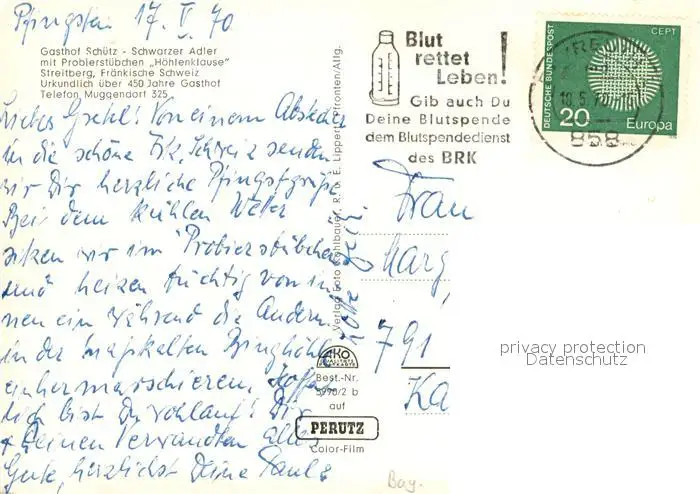 Pfingsten 17. V. 70
Gasthof Schütz - Schwarzer Adler
mit Probierstübchen „Höhlenklause"
Streitberg, Fränkische Schweiz
Urkundlich über 450 Jahre Gasthof
Telefon Muggendorf 325
Liebes Gretel! Von einem Abstecher
in die schöne Frk. Schweiz senden
wir Dir herzliche Pfingstgrüße
Bei dem kühlen Wetter
sitzen wir im Probierstübchen
und heizen tüchtig von in-
nen ein während die Andern
in der
einhermarschieren. Hoffent-
lich bist Du wohlauf! Dir
+ Deinen Verwandten alles
Gute, herzlichst Deine
Verlag Foto
R. u. E. Lippert, Pfronten/Allg.
AKO
Best.-Nr.
5990/2 b
auf
PERUTZ
Color-Film
Blut
rettet
Leben!
Gib auch Du
Deine Blutspende
dem Blutspendedienst
des BRK
18.5.70
858
DEUTSCHE BUNDESPOST
CEPT
20
Europa
Frau
Marg
791
Ka
Bay.
privacy protection
Datenschutz